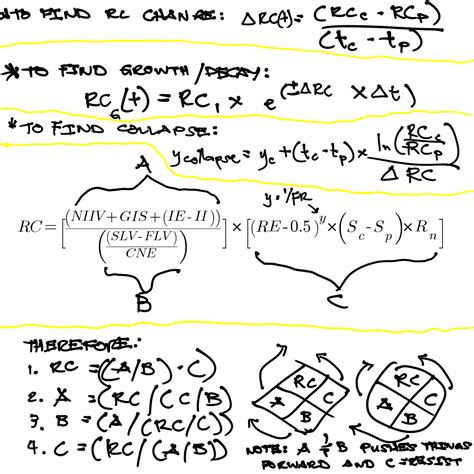 *TO FIND RC CHANGE: ΔRC(t) = (RC_c - RC_p) / (t_c - t_p)
*TO FIND GROWTH/DECAY:
RC_G(t) = RC_1 x e^(±ΔRC × Δt)
*TO FIND COLLAPSE:
y_collapse = y_c + (t_c - t_p) × ln(RC_c / RC_p) / Δ RC
A
y = 1/FR
RC = [(NIIV + GIS + (IE - II)) / ((SLV - FLV) / CNE)] × [(RE - 0.5)^y × (S_c - S_p) × R_n]
B
C
THEREFORE:
1. RC = (A/B) · C)
2. A = (RC / (C/B)
3. B = (A / (RC/C)
4. C = (RC / (A/B))
RC
A
C
B
RC
A
C
B
NOTE: A & B PUSHES THINGS
FORWARD AND C RESIST